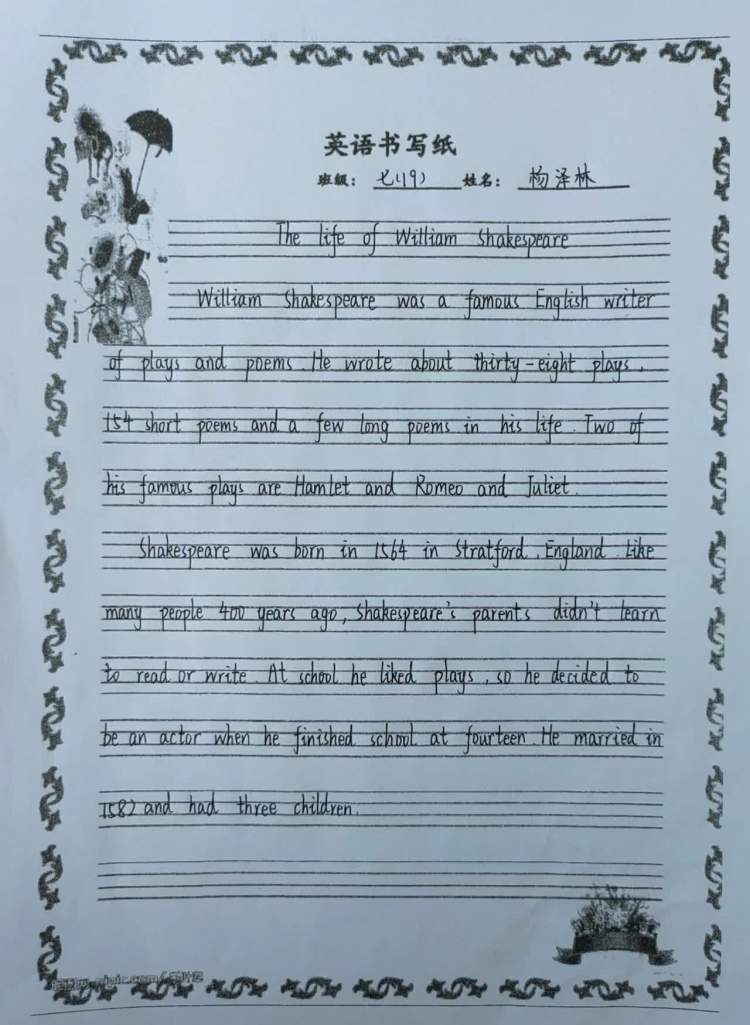 英语书写纸
班级： 七(19) 姓名： 杨泽林
The life of William Shakespeare
William Shakespeare was a famous English writer
of plays and poems. He wrote about thirty-eight plays,
154 short poems and a few long poems in his life. Two of
his famous plays are Hamlet and Romeo and Juliet.
Shakespeare was born in 1564 in Stratford, England. Like
many people 400 years ago, Shakespeare's parents didn't learn
to read or write. At school he liked plays, so he decided to
be an actor when he finished school at fourteen. He married in
1582 and had three children.